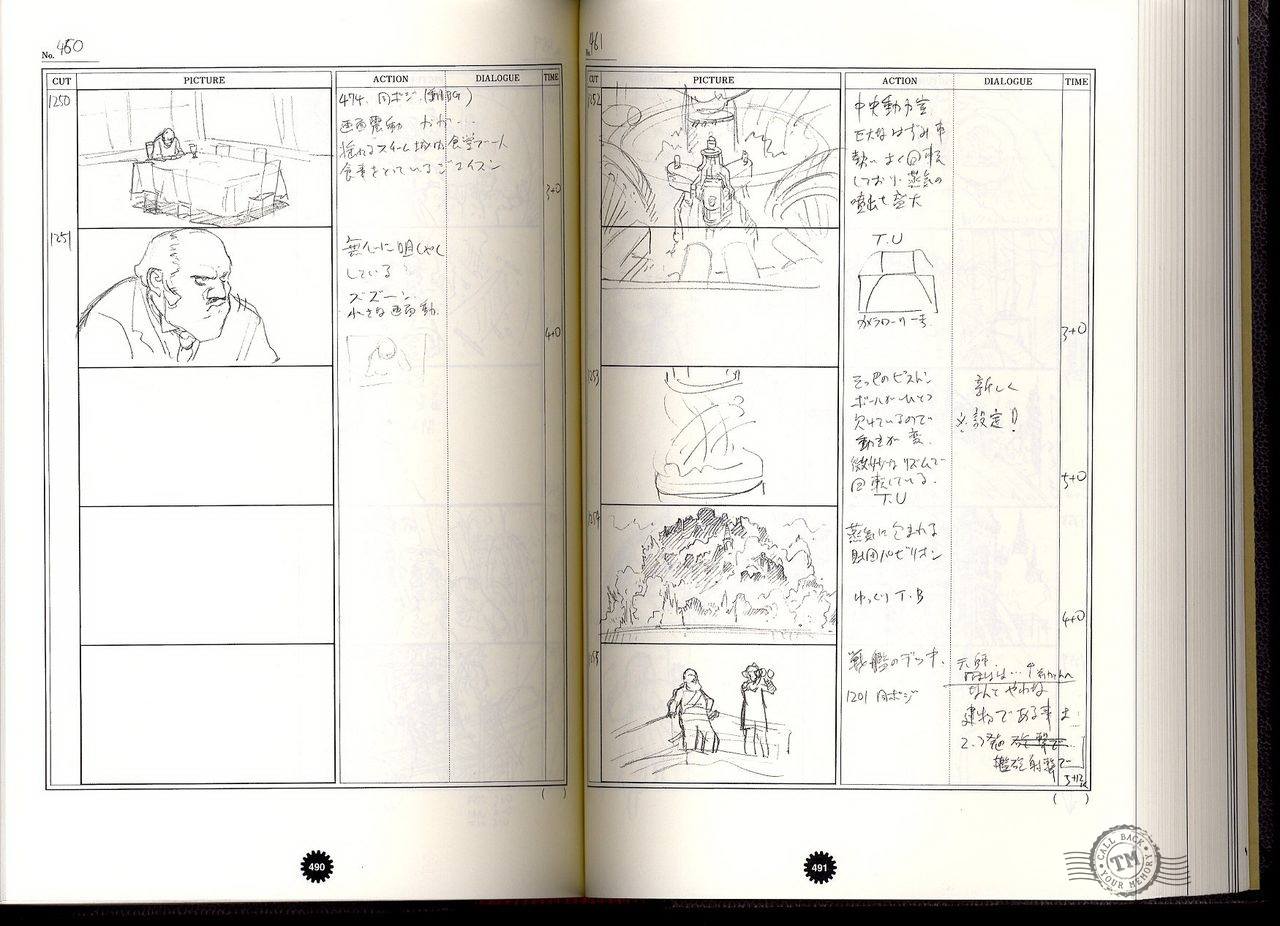 No. 460
CUT PICTURE ACTION DIALOGUE TIME
1250
474. 同ポジ
画面震動
揺れるスチーム城内食堂
食事をとっている
3+0
1251
無心に咀しゃく
している
ズズーン
小さな画面動.
4+0
490
461
CUT PICTURE ACTION DIALOGUE TIME
1252
中央動力室
巨大なはずみ車
回転
しており、蒸気の
噴出も
T.U
3+0
1253
ピストン
ボールがひとつ
欠けているので
動きが変.
微妙なリズムで
回転している.
T.U
新しく
設定!!
5+0
1254
蒸気に包まれる
財団パビリオン
ゆっくり T.B
4+0
1255
戦艦のデッキ.
1201 同ポジ
なんて やわな
建物である事よ
艦砲射撃で
490
491
CALL BACK
TM
YOUR MEMORY